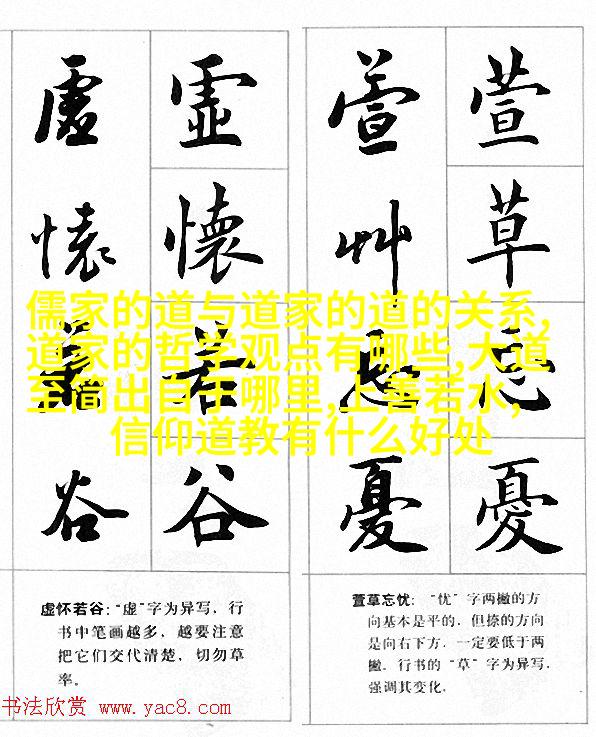 虚怀若谷
虚怀若谷
萱草忘忧
萱草忘憂
儒家的道与道家的道的关系,
道家的哲学观点有哪些,大道
至简出自于哪里,上善若水,
信仰道教有什么好处
虚怀若谷:“虚”字为异写,行
书中笔画越多,越要注意
把它们交代清楚,切勿草
率。
萱草忘忧:“忧”字两撇的方
向基本是平的,但捺的方向
是向右下方,一定要低于两
撇。行书的“草”字为异写,
强调其变化。
书法欣赏 www.yac8.com